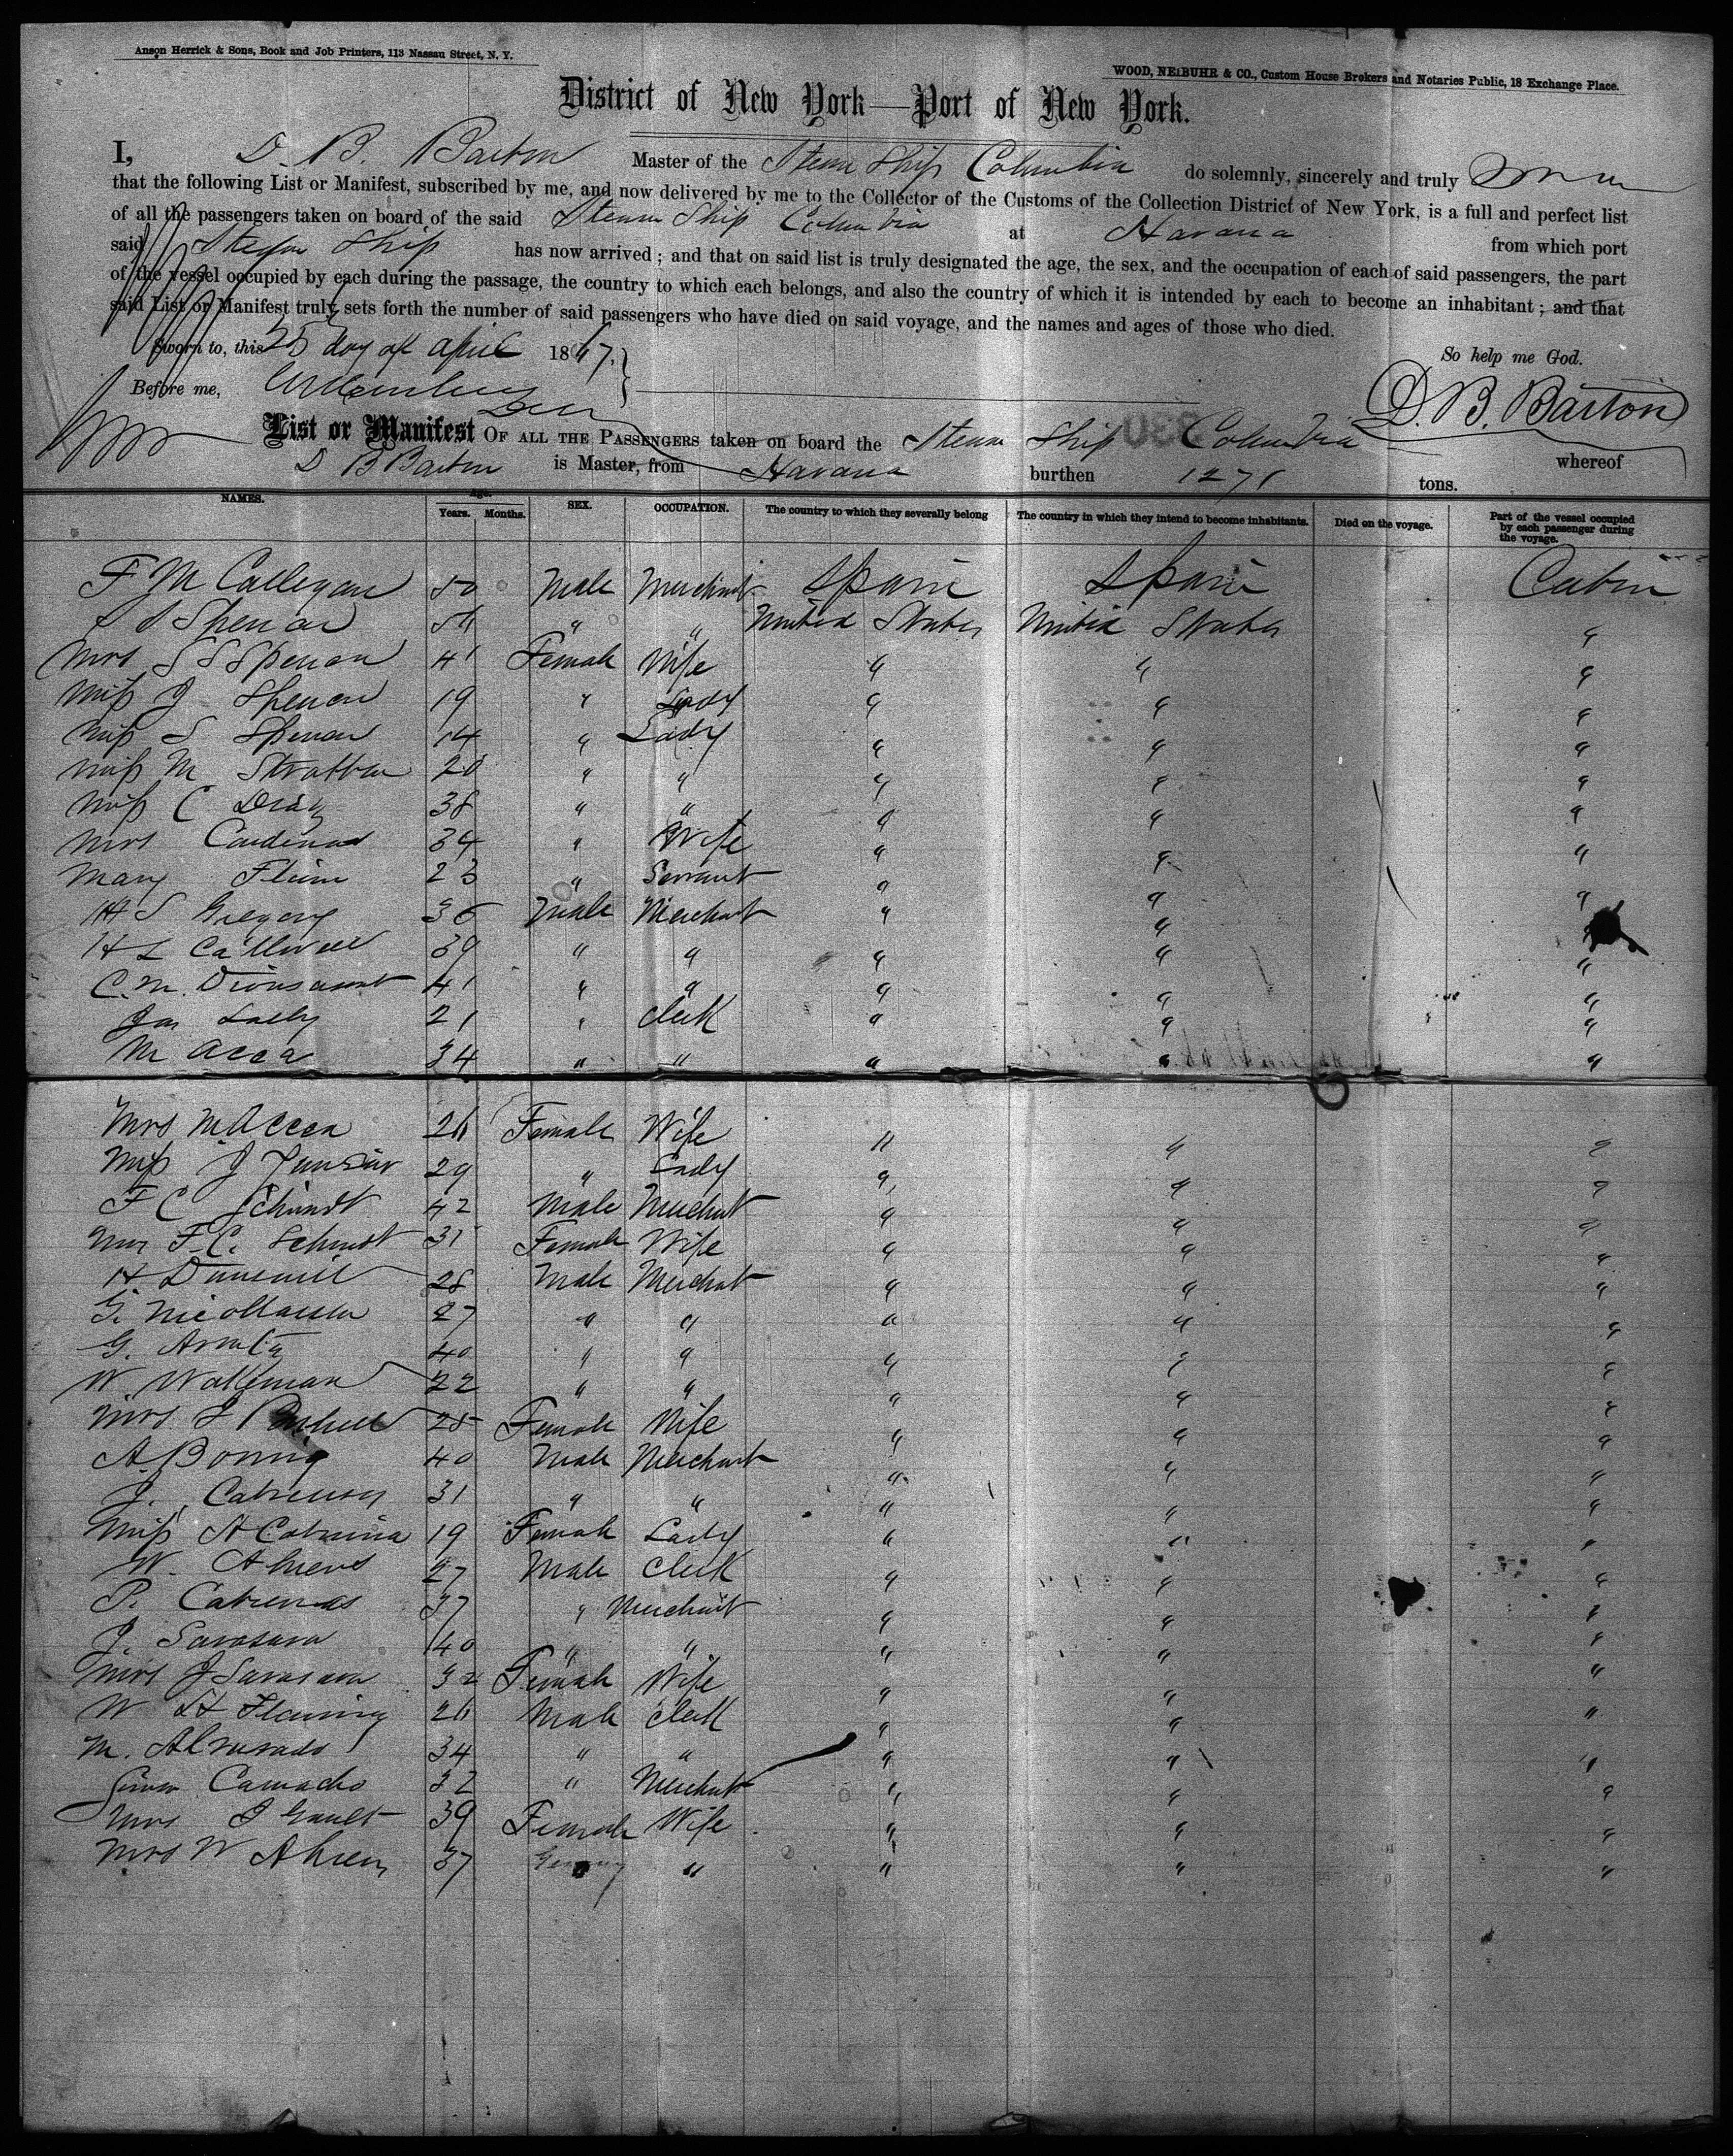 Anson Herrick & Sons, Book and Job Printers, 113 Nassau Street, N. Y.
WOOD, NEIBUHR & CO., Custom House Brokers and Notaries Public, 18 Exchange Place.
District of New York—Port of New York.
I, D. B. Barton Master of the Steam Ship Columbia do solemnly, sincerely and truly
that the following List or Manifest, subscribed by me, and now delivered by me to the Collector of the Customs of the Collection District of New York, is a full and perfect list
of all the passengers taken on board of the said Steam Ship Columbia at Havana from which port
said Steam Ship has now arrived; and that on said list is truly designated the age, the sex, and the occupation of each of said passengers, the part
of the vessel occupied by each during the passage, the country to which each belongs, and also the country of which it is intended by each to become an inhabitant; and that
said List or Manifest truly sets forth the number of said passengers who have died on said voyage, and the names and ages of those who died.
Sworn to, this 25 day of April 1867.
So help me God.
Before me,
D. B. Barton
List or Manifest OF ALL THE PASSENGERS taken on board the Steam Ship Columbia whereof
D B Barton is Master, from Havana burthen 1271 tons.
NAMES. Age. Years. Months. SEX. OCCUPATION. The country to which they severally belong The country in which they intend to become inhabitants. Died on the voyage. Part of the vessel occupied by each passenger during the voyage.
F M Callegan 50 Male Merchant Spain Spain Cabin
S S Spencer " " United States United States "
Mrs S S Spencer 41 Female Wife " " "
Miss J Spencer 19 " Lady " " "
Miss S Spencer 14 " Lady " " "
Miss M Stratton 20 " " " " "
Miss C Diaz 38 " " " " "
Mrs Cardenas 34 " Wife " " "
Mary 23 " Servant " " "
H S Gregory 36 Male Merchant " " "
H L 39 " " " " "
C. M. 41 " " " " "
Jas Lally 21 " Clerk " " "
M Acca 34 " " " " "
Mrs M Acca 26 Female Wife " " "
Miss J 29 " Lady " " "
F C Schmidt 42 Male Merchant " " "
Mrs F. C. Schmidt 35 Female Wife " " "
H 28 Male Merchant " " "
G. 27 " " " " "
G. 40 " " " " "
W Walkeman 22 " " " " "
Mrs J 25 Female Wife " " "
A. 40 Male Merchant " " "
J. 31 " " " " "
Miss A Cabrina 19 Female Lady " " "
W. Ahrens 27 Male Clerk " " "
P. Cabrenas 37 " Merchant " " "
J. Sarasara 40 " " " " "
Mrs J Sarasara 32 Female Wife " " "
W H Fleming 26 Male Clerk " " "
M. Alvarado 34 " " " " "
Simon Camacho 32 " Merchant " " "
Mrs J Gault 39 Female Wife " " "
Mrs W Ahrens 37 " " " " "